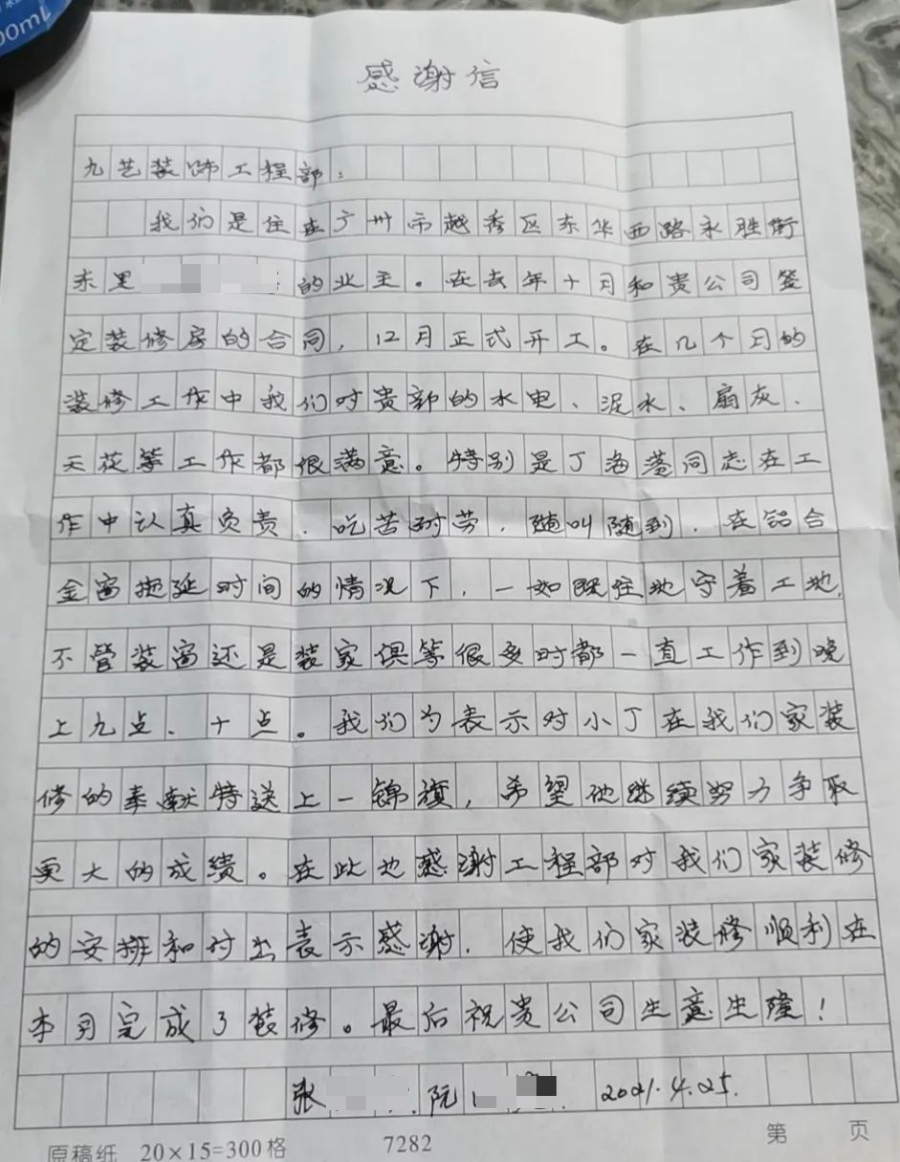 00ml
感谢信
九艺装饰工程部：
我们是住在广州市越秀区东华西路永胜街
东里的业主。在去年十月和贵公司签
定装修房的合同，12月正式开工。在几个月的
装修工作中我们对贵部的水电、泥水、扇灰、
天花等工作都很满意。特别是丁海同志在工
作中认真负责、吃苦耐劳，随叫随到，在铝合
金窗拖延时间的情况下，一如既往地守着工地，
不管装窗还是装家俱等很多时都一直工作到晚
上九点、十点。我们为表示对小丁在我们家装
修的奉献特送上一锦旗，希望他继续努力争取
更大的成绩。在此也感谢工程部对我们家装修
的安排和付出表示感谢，使我们家装修顺利在
本月完成了装修。最后祝贵公司生意生隆！
张 阮 2021.4.25.
原稿纸 20×15=300格 7282 第 页